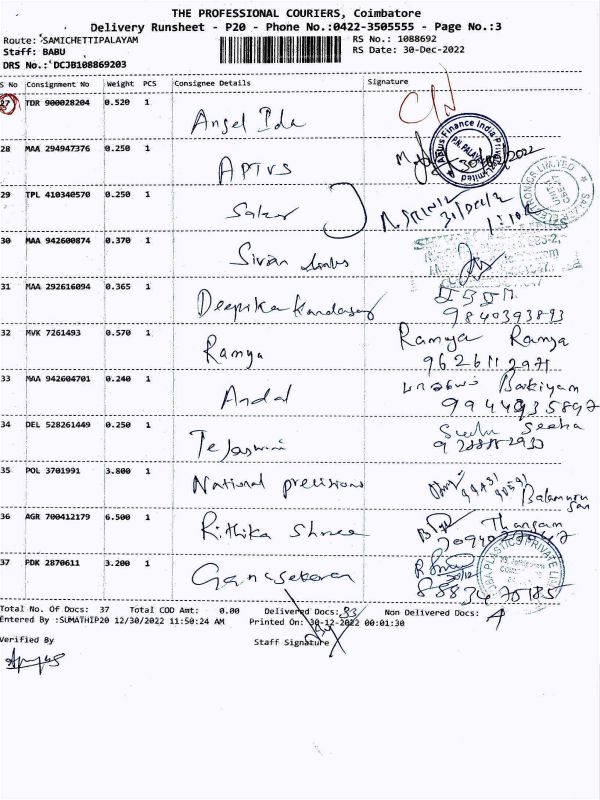 THE PROFESSIONAL COURIERS, Coimbatore
Delivery Runsheet - P20 - Phone No.:0422-3505555 - Page No.:3
Route: SAMICHETTIPALAYAM RS No.: 1088692
Staff: BABU RS Date: 30-Dec-2022
DRS No.: DCJB108869203
S No Consignment No Weight PCS Consignee Details Signature
27 TDR 900028204 0.520 1 Angel Ida
28 MAA 294947376 0.250 1 APTVS
29 TPL 410340570 0.250 1 Salzer
30 MAA 942600874 0.370 1 Sivan
31 MAA 292616094 0.365 1 Deepika Kandasamy 9840393893
32 MVK 7261493 0.570 1 Ramya Ramya Ramya
9626112971
33 MAA 942604701 0.240 1 Andal Bakiyam
9944935897
34 DEL 528261449 0.250 1 Tejaswini
35 POL 3701991 3.800 1 National precisions Balamurugan
36 AGR 700412179 6.500 1 Rithika Shree Thangam
37 PDK 2870611 3.200 1 Ganasekaran
8883470185
Total No. Of Docs: 37 Total COD Amt: 0.00 Delivered Docs: 33 Non Delivered Docs: 4
Entered By :SUMATHIP20 12/30/2022 11:50:24 AM Printed On: 30-12-2022 00:01:30
Verified By Staff Signature